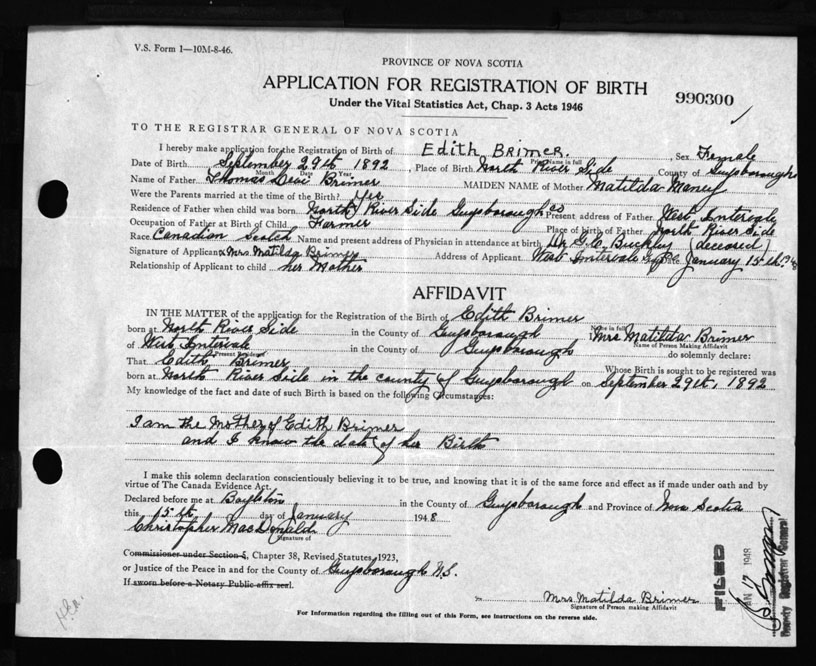 V.S. Form 1—10M-8-46.
PROVINCE OF NOVA SCOTIA
APPLICATION FOR REGISTRATION OF BIRTH
990300
Under the Vital Statistics Act, Chap. 3 Acts 1946
TO THE REGISTRAR GENERAL OF NOVA SCOTIA
I hereby make application for the Registration of Birth of Edith Brimer. Sex Female
Print Name in full
Date of Birth September 29th 1892, Place of Birth North River Side County of Guysborough
Month Day Year
Name of Father Thomas Brimer MAIDEN NAME of Mother Matilda
Were the Parents married at the time of the Birth? Yes
Residence of Father when child was born North River Side Guysborough Co Present address of Father West Intervale
Occupation of Father at Birth of Child Farmer Place of birth of Father North River Side
Race Canadian Scotch Name and present address of Physician in attendance at birth Dr. G. C. Buckley (deceased)
Signature of Applicant x Mrs Matilda Brimer Address of Applicant West Intervale January 15th 48
Relationship of Applicant to child her Mother
AFFIDAVIT
IN THE MATTER of the application for the Registration of the Birth of Edith Brimer
born at North River Side in the County of Guysborough Mrs Matilda Brimer
Name in full
Name of Person Making Affidavit
of West Intervale in the County of Guysborough do solemnly declare:
Present Residence
That Edith Brimer Whose Birth is sought to be registered was
born at North River Side in the county of Guysborough on September 29th, 1892
My knowledge of the fact and date of such Birth is based on the following Circumstances:
I am the Mother of Edith Brimer
and I know the date of her Birth
I make this solemn declaration conscientiously believing it to be true, and knowing that it is of the same force and effect as if made under oath and by
virtue of The Canada Evidence Act.
Declared before me at Boylston in the County of Guysborough and Province of Nova Scotia
this 15th day of January 1948
Christopher MacDonald
Signature of
Commissioner under Section 5, Chapter 38, Revised Statutes, 1923,
or Justice of the Peace in and for the County of Guysborough N.S.
If sworn before a Notary Public affix seal.
Mrs Matilda Brimer
Signature of Person making Affidavit
For Information regarding the filling out of this Form, see instructions on the reverse side.
FILED
JAN 17 1948
Deputy Registrar General